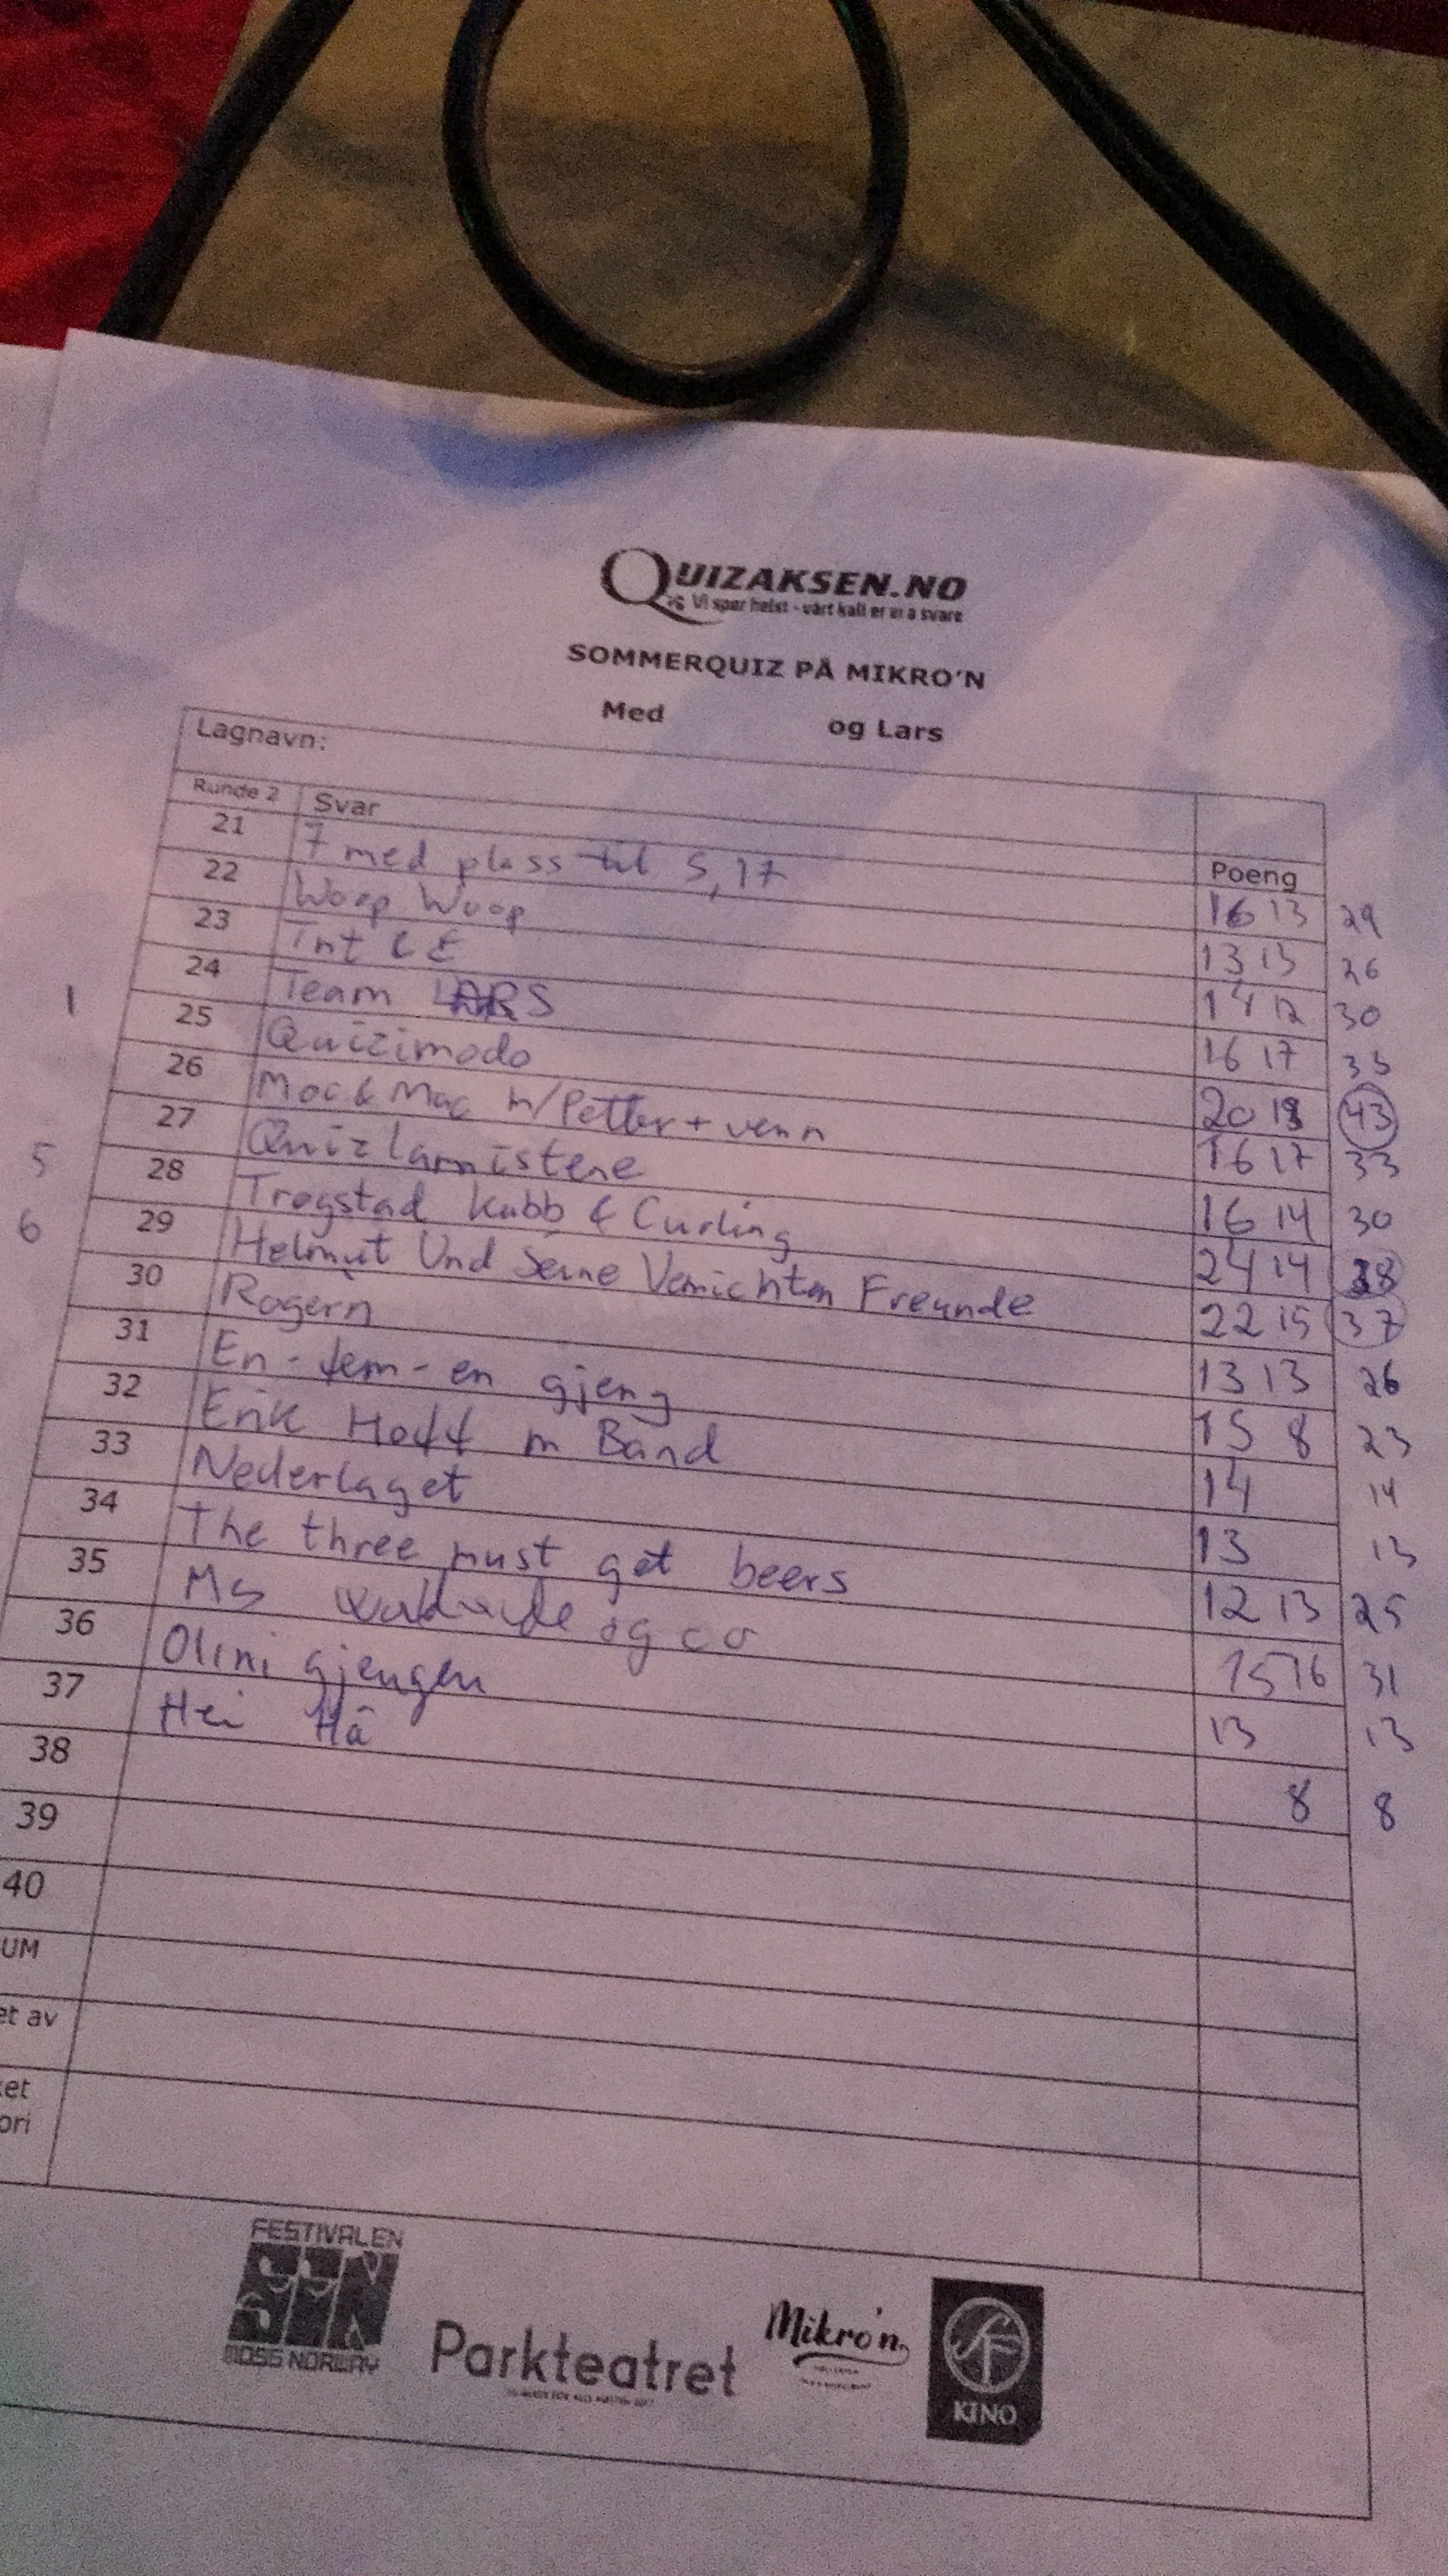 QUIZAKSEN.NO
Vi spør helst - vårt kall er ei å svare
SOMMERQUIZ PÅ MIKRO'N
Med og Lars
Lagnavn:
Runde 2 Svar Poeng
21 7 med plass til 5,17 16 13 29
22 Woop Woop 13 13 26
23 Tnt 14 12 30
1 24 Team LARS 16 17 33
25 Quizimodo 20 43
26 Moc & Mac m/Petter + venn 16 17 33
27 Quizlamistene 16 14 30
5 28 Trøgstad Kubb & Curling 24 14 38
6 29 Helmut Und Seine Vernichten Freunde 22 15 37
30 Rogern 13 13 26
31 En-fem-en gjeng 15 8 23
32 Erik Hoff m Band 14 14
33 Nederlaget 13 13
34 The three must get beers 12 13 25
35 Ms og co 15 16 31
36 Olini gjengen 13 13
37 Hei Hå 8 8
38
39
40
UM
et av
ket
ori
FESTIVALEN
SIN
MOSS NORWAY
Parkteatret
Mikro'n
KINO